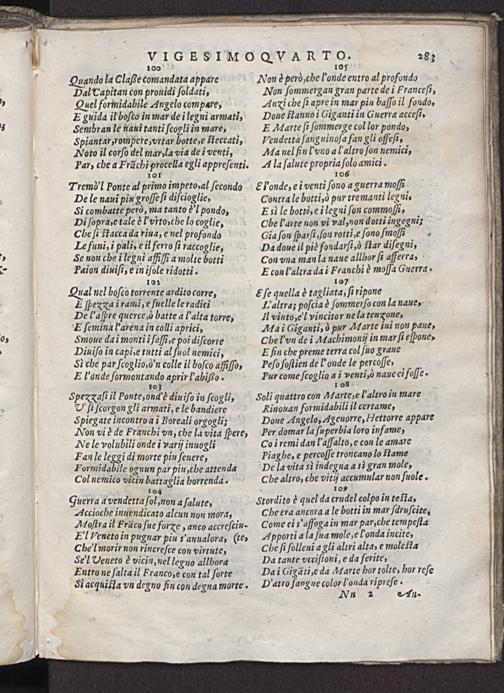 VIGESIMOQVARTO. 283
100
Quando la Classe comandata appare
Dal Capitan con prouidi soldati,
Quel formidabile Angelo compare,
E guida il bosco in mar de i legni armati,
Sembran le naui tanti scogli in mare,
Spiantar, rompere, vrtar botte, e steccati,
Noto il corso del mar, la via de i venti,
Par, che a Frãchi procella egli appresenti.
101
Tremò'l Ponte al primo impeto, al secondo
De le naui piu grosse si discioglie,
Si combatte però, ma tanto è'l pondo,
Di sopra, e tale è l'vrto, che lo coglie,
Che si stacca da riua, e nel profondo
Le funi, i pali, e il ferro si raccoglie,
Se non che i legni affissi a molte botti
Paion diuisi, e in isole ridotti.
102
Qual nel bosco torrente ardito corre,
E spezza i rami, e suelle le radici
De l'aspre querce, ò batte al'alta torre,
E semina l'arena in colli aprici,
Smoue da i monti i sassi, e poi discorre
Diuiso in capi, e tutti al suol nemici,
Sì che par scoglio, ò'n colle il bosco affisso,
E l'onde sormontando aprir l'abisso.
103
Spezzasi il Ponte, ond'è diuiso in scogli,
V' si scorgon gli armati, e le bandiere
Spiegate incontro a i Boreali orgogli;
Non vi è de Franchi vn, che la vita spere,
Ne le volubili onde i varij inuogli
Fan le leggi di morte piu seuere,
Formidabile ognun par piu, che attenda
Col nemico vicin battaglia horrenda.
104
Guerra a vendetta sol, non a salute,
Accioche inuendicato alcun non mora,
Mostra il Frãco sue forze, anco accresciu-
E'l Veneto in pugnar piu s'aualora, (te,
Che'l morir non rincresce con virtute,
Se'l Veneto è vicin, nel legno allhora
Entro ne salta il Franco, e con tal sorte
Si acquista vn degno fin con degna morte.
105
Non è però, che l'onde entro al profondo
Non sommergan gran parte de i Francesi,
Anzi che si apre in mar piu basso il fondo,
Doue stanno i Giganti in Guerra accesi,
E Marte si sommerge col lor pondo,
Vendetta sanguinosa fan gli offesi,
Ma nel fin l'vno a l'altro son nemici,
A la salute propria solo amici.
106
E l'onde, e i venti sono a guerra mossi
Contra le botti, ò pur tremanti legni,
E sì le botti, e i legni son commossi,
Che l'arte non vi val, non dotti ingegni;
Gia son sparsi, son rotti, e sono smossi
Da doue il piè fondarsi, ò star disegni,
Con vna man la naue allhor si afferra,
E con l'altra da i Franchi è mossa Guerra.
107
E se quella è tagliata, si ripone
L'altra; poscia è sommerso con la naue,
Il vinto, e'l vincitor ne la tenzone,
Ma i Giganti, ò pur Marte iui non paue,
Che l'vn de i Machimonij in mar si espone,
E fin che preme terra col suo graue
Peso sostien de l'onde le percosse,
Pur come scoglio a i venti, ò naue ci fosse.
108
Soli quattro con Marte, e l'altro in mare
Rinouan formidabili il certame,
Doue Angelo, Agenorre, Hettorre appare
Per domar la superbia loro infame,
Co i remi dan l'assalto, e con le amare
Piaghe, e percosse troncano lo stame
De la vita sì indegna a sì gran mole,
Che altro, che vitij accumular non suole.
109
Stordito è quel da crudel colpo in testa,
Che era ancora a le botti in mar sdruscite,
Come ei s'affoga in mar par, che tempesta
Apporti a la sua mole, e l'onda incite,
Che si solleui a gli altri alta, e molesta
Da tante vccisioni, e da ferite,
Da i Gigãti, e da Marte hor tolte, hor rese
D'atro sangue color l'onda riprese.
Nn 2 An-